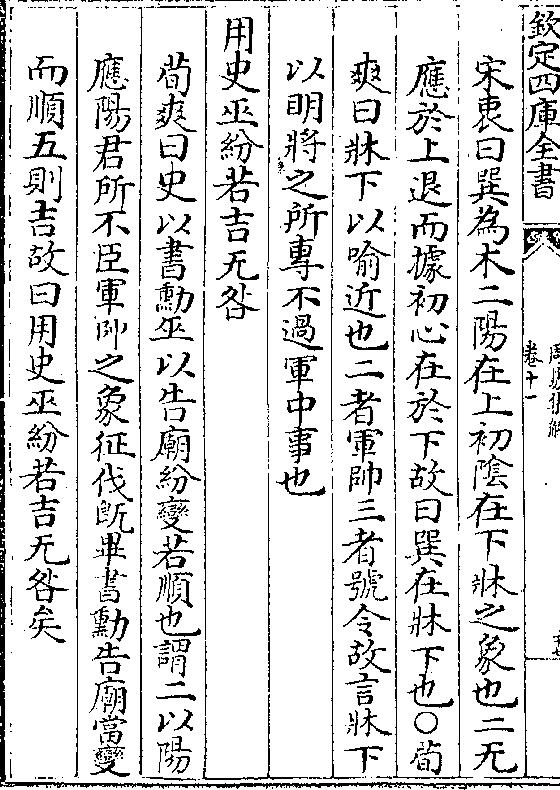 欽定四庫全書
周易集解
卷十一
宋衷曰巽為木二陽在上初陰在下牀之象也二无
應於上退而據初心在於下故曰巽在牀下也○荀
爽曰牀下以喻近也二者軍帥三者號令故言牀下
以明將之所專不過軍中事也
用史巫紛若吉无咎
荀爽曰史以書勳巫以告廟紛變若順也謂二以陽
應陽君所不臣軍帥之象征伐既畢書勳告廟當變
而順五則吉故曰用史巫紛若吉无咎矣